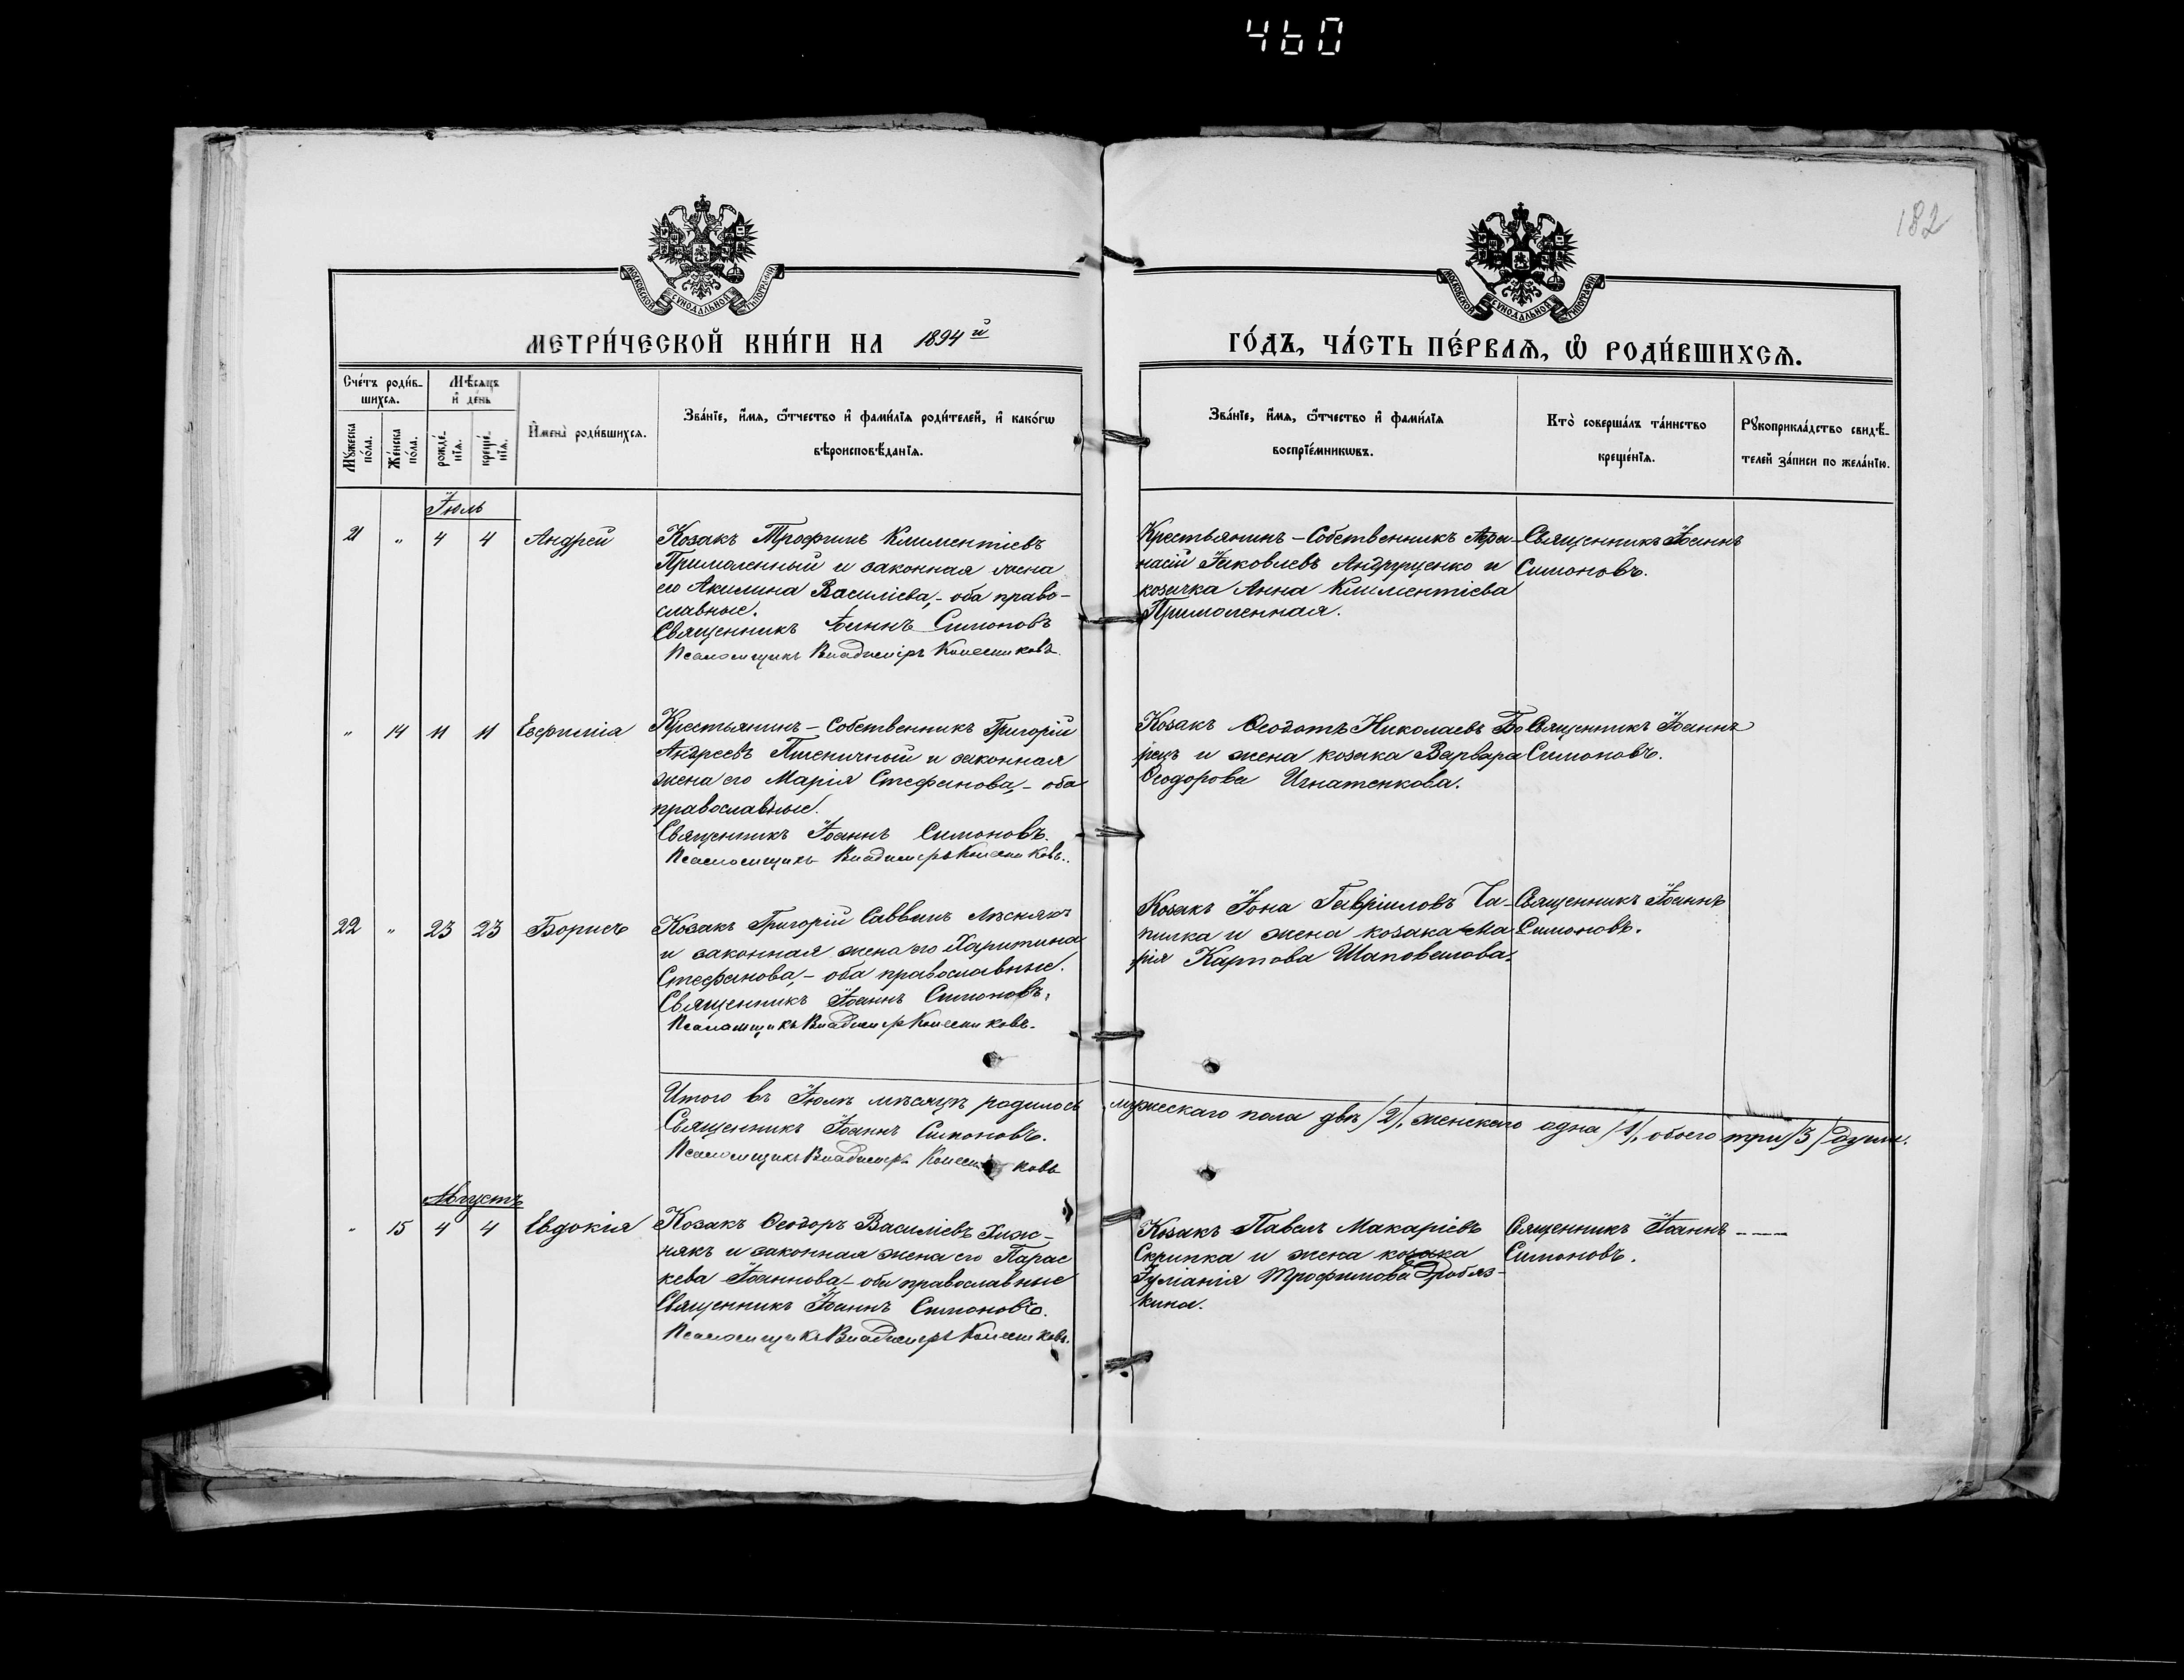 460
182
МОСКОВСКОЙ СѴНОДАЛЬНОЙ ТИПОГРАФІИ
МОСКОВСКОЙ СѴНОДАЛЬНОЙ ТИПОГРАФІИ
МЕТРИ́ЧЕСКОЙ КНИ́ГИ НА 1894й
ГО́ДЪ, ЧА́СТЬ ПЕ́РВАѦ, Ѡ҆ РОДИ́ВШИХСѦ.
Сче́тъ роди́в-
шихсѧ.
Мѣ́сѧцъ
и҆ де́нь
Мꙋ́жеска
по́ла.
Же́нска
по́ла.
рожде́-
нїѧ.
креще́-
нїѧ.
И҆мена̀ роди́вшихсѧ.
Зва́нїе, и҆́мѧ, ѻ҆́тчество и҆ фами́лїѧ роди́телей, и҆ како́гѡ
вѣроисповѣ́данїѧ.
Зва́нїе, и҆́мѧ, ѻ҆́тчество и҆ фами́лїѧ
воспрїе́мникѡвъ.
Кто̀ соверша́лъ та́инство
креще́нїѧ.
Рꙋкоприкла́дство свидѣ́-
телей за́писи по жела́нїю.
Іюль
21 " 4 4 Андрей
Козакъ Трофимъ Климентіевъ
Прималенный и законная жена
его Акилина Василіева,- оба право-
славные.
Священникъ Іоаннъ Симоновъ
Псаломщикъ Владиміръ Колесниковъ.
Крестьянинъ-Собственникъ Афа-
насій Іаковлевъ Андрущенко и
козачка Анна Климентіева
Прималенная.
Священникъ Іоаннъ
Симоновъ.
" 14 11 11 Евфимія
Крестьянинъ-Собственникъ Григорій
Андреевъ Пшеничный и законная
жена его Марія Стефанова,- оба
православные.
Священникъ Іоаннъ Симоновъ.
Псаломщикъ Владимеръ Колесниковъ.
Козакъ Ѳеодотъ Николаевъ Бо
рецъ и жена козака Варвара
Ѳеодорова Игнатенкова.
Священникъ Іоаннъ
Симоновъ.
22 " 23 23 Борисъ
Козакъ Григорій Саввинъ Лѣснякъ
и законная жена его Харитина
Стефанова,- оба православные.
Священникъ Іоаннъ Симоновъ.
Псаломщикъ Владимеръ Колесниковъ.
Козакъ Іона Гавріиловъ Ча-
пилка и жена козака Ма-
рія Карпова Шаповалова.
Священникъ Іоаннъ
Симоновъ.
Итого въ Іюлѣ мѣсяцѣ родилось мужескаго пола двѣ /2/, женскаго одна /1/, обоего три /3/ души.
Священникъ Іоаннъ Симоновъ.
Псаломщикъ Владимеръ Колесниковъ
Августъ
" 15 4 4 Евдокія
Козакъ Ѳеодоръ Василіевъ Хиж-
някъ и законная жена его Парас
кева Іоаннова,- оба православные
Священникъ Іоаннъ Симоновъ.
Псаломщикъ Владимеръ Колесниковъ.
Козакъ Павелъ Макаріевъ
Скрипка и жена козака
Іуліанія Трофимова Дробяз-
кина.
Священникъ Іоаннъ ----
Симоновъ.